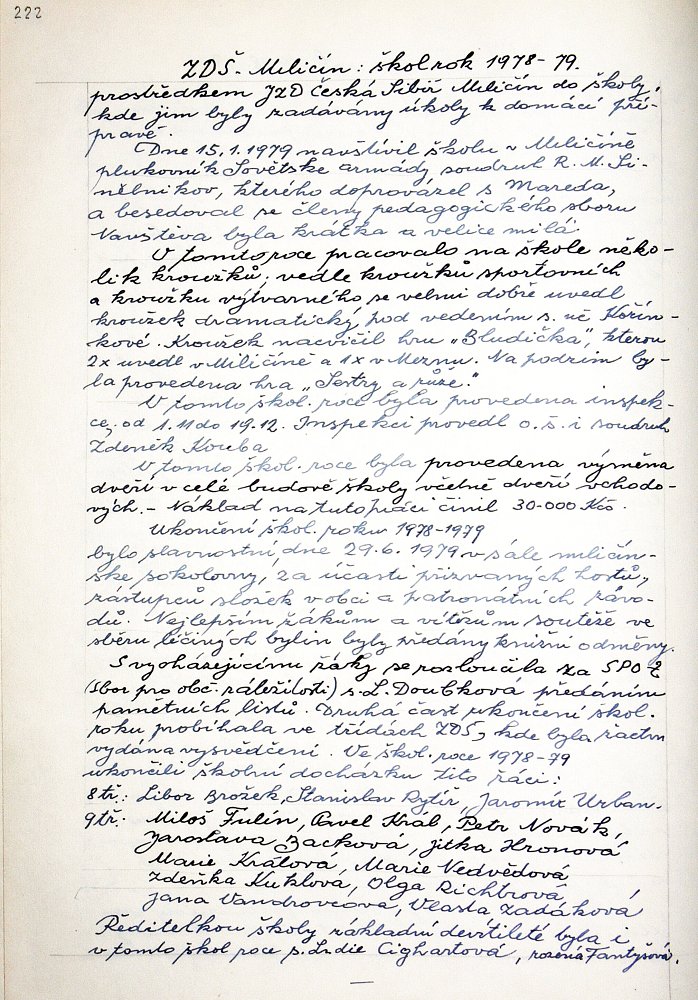 222
ZDŠ. Miličín: škol rok 1978-79.
prostředkem JZD Česká Sibiř Miličín do školy,
kde jim byly zadávány úkoly k domácí pří-
pravě.
Dne 15.1.1979 navštívil školu v Miličíně
plukovník Sovětske armády soudruh R. M. Si-
nělnikov, kterého doprovázel s Mareda,
a besedoval se členy pedagogického sboru
Navštěva byla krátka a velice milá
V tomto roce pracovalo na škole něko-
lik kroužků. vedle kroužků sportovních
a kroužku výtvarného se velmi dobře uvedl
kroužek dramatický pod vedením s. uč Kořín-
kové. Kroužek nacvičil hru „Bludička", kterou
2x uvedl v Miličíně a 1x v Meznu. Na podzim by-
la provedena hra „Sestry a růže."
V tomto škol. roce byla provedena inspek-
ce, od 1.11 do 19.12. Inspekci provedl o.š.i soudruh
Zdeněk Kouba
V tomto škol. roce byla provedena výměna
dveří v celé budově školy včetně dveří vchodo-
vých. - Náklad na tuto práci činil 30-000 Kčs.
Ukončení škol. roku 1978-1979
bylo slavnostní dne 29.6.1979 v sále miličín-
ske sokolovny, za účasti přizvaných hostů,
zástupců složek v obci a patronátních závo-
dů. Nejlepším žákům a vítězům soutěže ve
sběru léčivých bylin byly předány knižní odměny.
S vycházejícímu žáky se rozloučila za SPOZ
(sbor pro obč. záležitosti) s. L. Doubková předáním
pamětních listů. Druhá část ukončení škol.
roku probíhala ve třídách ZDŠ, kde byla žactvu
vydána vysvědčení. Ve škol. roce 1978-79
ukončili školní docházku tito žáci:
8 tř.: Libor Brožek, Stanislav Rytíř, Jaromír Urban.
9 tř. Miloš Fulín, Pavel Král, Petr Novák,
Jaroslava Backová, Jitka Hronová
Marie Králová, Marie Nedvědová
Zdeňka Kuklova, Olga Richtrová
Jana Vandrovcova, Vlasta Zadáková
Ředitelkou školy základní devítileté byla i
v tomto škol roce s. Lidie Cighartová, rozená Fantyšová.